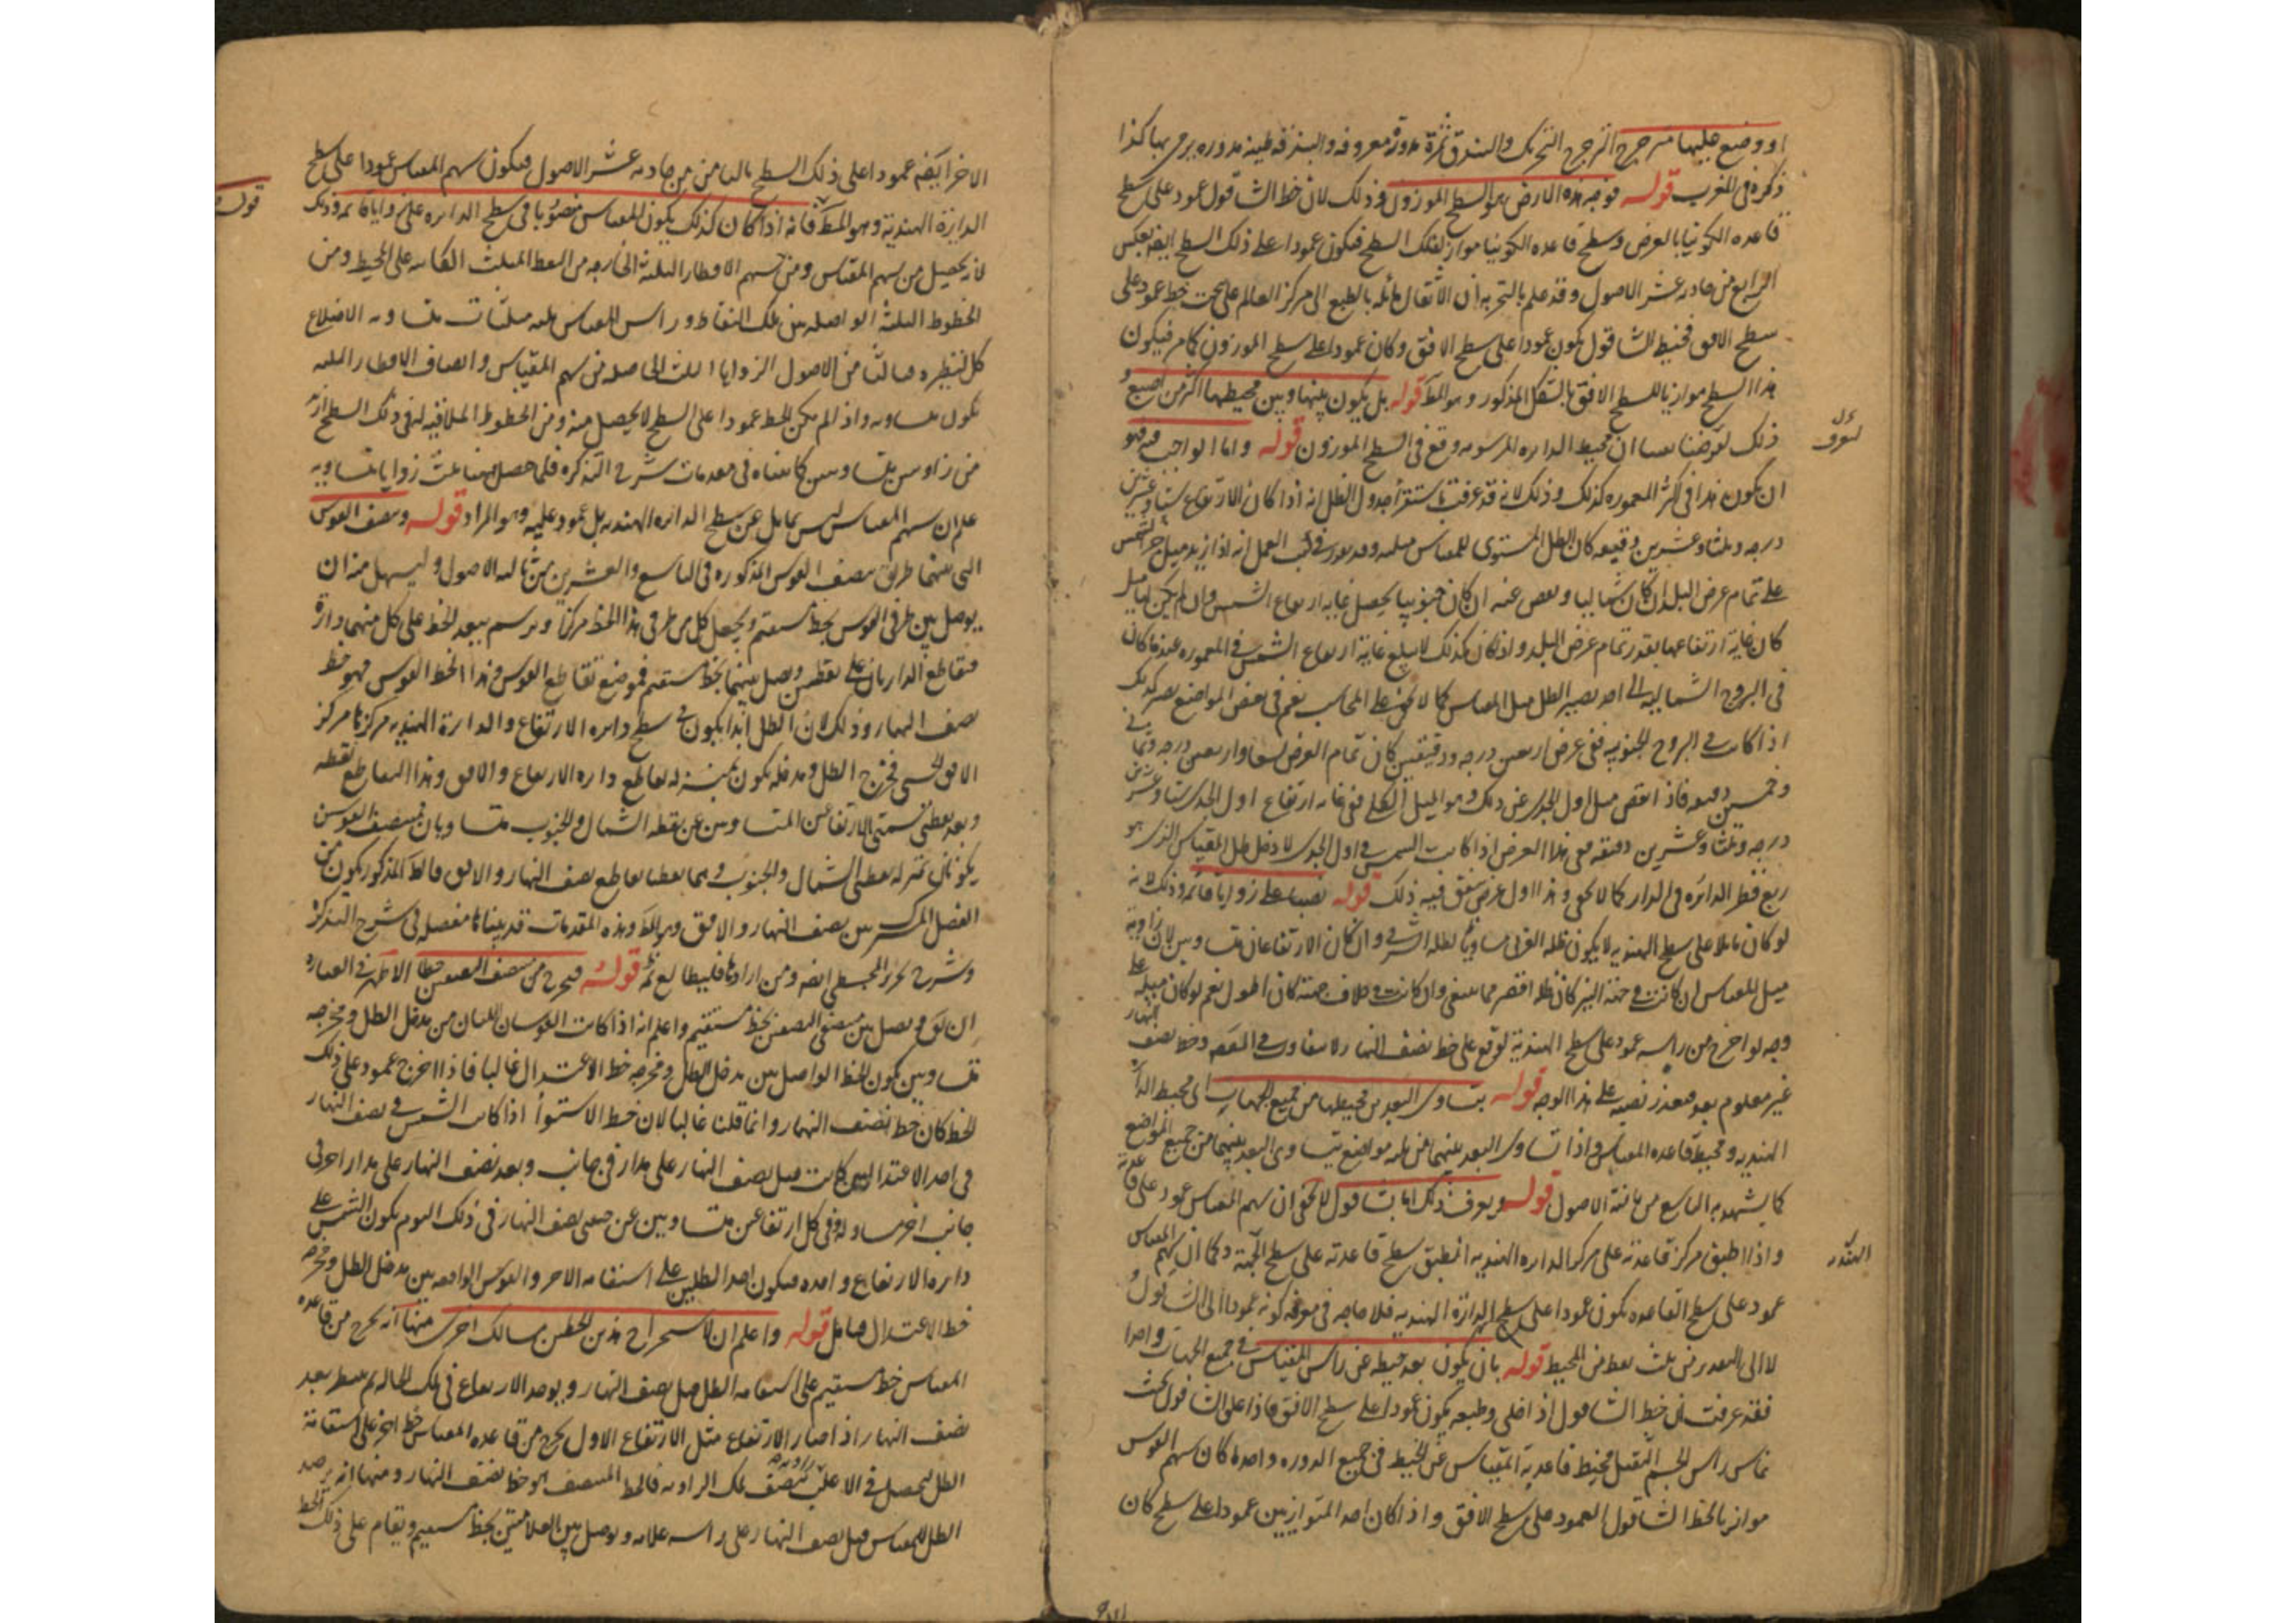 او وضع عليها مترجرج الترجرج التحرك والبندق ثمرة مدورة معروفة والبندقة طينة مدورة يرمى بها كذا
ذكره في المغرب قوله فوجه هذه الارض هو السطح الموزون وذلك لان خط الشاقول عمود على سطح
قاعدة الكونيا بالعرض وسطح قاعدة الكونيا مواز لذلك السطح فيكون عمودا على ذلك السطح ايضا بعكس
الرابع من حادية عشر الاصول وقد علم بالتجربة ان الاثقال مائلة بالطبع الى مركز العالم على سمت خط عمود على
سطح الافق فخيط الشاقول يكون عمودا على سطح الافق وكان عمودا على سطح الموزون كما مر فيكون
هذا السطح موازيا لسطح الافق بالشكل المذكور وهو المط قوله بل يكون بينها وبين محيطها اكثر من اصبع و
ذلك محيط الدايرة المرسومة وقع في السطح الموزون قوله واما الواجب فيه فهو
ان يكون هذا في اكثر المعمورة كذلك وذلك لانه قد عرفت باستقراء جدول الظل انه اذا كان الارتفاع ستا وعشرين
درجة وثلثا وعشرين دقيقة كان الظل المستوي للمقياس مثليه وقد في كتب العمل انه اذا زيد ميل جزء الشمس
على تمام عرض البلد ان كان شماليا ونقص عنه ان كان جنوبيا يحصل غاية ارتفاع الشمس وان لم يكن لها ميل
كان غاية ارتفاعها بقدر تمام عرض البلد واذا كان كذلك لا يبلغ غاية ارتفاع الشمس في المعمورة عندما كان
في البروج الشمالية الى احد يصير الظل مثل المقياس كما لا يخفى على المحاسب نعم في بعض المواضع يصير كذلك
اذا كانت في البروج الجنوبية ففي عرض اربعين درجة ودقيقتين كان تمام العرض تسعا واربعين درجة وثمانيا
وخمسين دقيقة فاذا نقص ميل اول الجدي عن ذلك وهو الميل الكلي بقي غاية ارتفاع اول الجدي ستا وعشرين
درجة وثلثا وعشرين دقيقة ففي هذا العرض اذا كانت الشمس في اول الجدي لا دخل ظل المقياس الذي هو
ربع قطر الدائرة في الدائرة كما لا يخفى وهذا اول عرض يتفق فيه ذلك قوله نصبا على زوايا قائمة وذلك لانه
لو كان مايلا على سطح الهندية لا يكون ظله الغربي مساويا لظله الشرقي وان كان الارتفاعان متساويين لان زاوية
ميل المقياس ان كانت في جهة النير كان ظله اقصر مما ينبغي وان كانت في خلاف جهته كان اطول نعم لو كان ميله على
وجه لو اخرج من راسه عمود على سطح الهندية لوقع على خط نصف النهار لا يتفاوت في المقصود وخط نصف النهار
غير معلوم بعد فتعذر نصبه على هذا الوجه قوله بتساوي البعد بين محيطها من جميع الجهات اي محيط الدائرة
الهندية ومحيط قاعدة المقياس واذا تساوى البعد بينهما من ثلثة مواضع يتساوى البعد بينهما من جميع المواضع
كما يشهد به التاسع من ثالثة الاصول قوله ويعرف ذلك اما بشاقول لا يخفى ان سهم المقياس عمود على قاعدته
واذا انطبق مركز قاعدته على مركز الدايرة الهندية انطبق سطح قاعدته على سطح البتة وكما ان سهم المقياس
عمود على سطح القاعدة يكون عمودا على سطح الدائرة الهندية فلا حاجة في معرفة كونه عمودا الى الشاقول و
لا الى التقدير من ثلث نقط من المحيط قوله بان يكون بعد خيطه عن راس المقياس في جميع الجهات واحدا
فقد عرفت ان خيط الشاقول اذا خلي وطبعه يكون عمودا على سطح الافق فاذا علق الشاقول بحيث
يماس راس الجسم الثقيل محيط قاعدة المقياس عن الخيط في جميع الدورة واحدا كان سهم القوس
موازيا لخط الشاقول العمود على سطح الافق واذا كان احد المتوازيين عمودا على سطح كان
الاخر ايضا عمودا على ذلك السطح بالثامن من حادية عشر الاصول فيكون سهم المقياس عمودا على سطح
الدايرة الهندية وهو المط فانه اذا كان كذلك يكون المقياس منصوبا في سطح الدايرة على زوايا قائمة وذلك
لانه يحصل من سهم المقياس ومن سهم الاقطار الثلثة الخارجة من النقط الثلث الكائنة على المحيط ومن
الخطوط الثلثة الواصلة بين تلك النقاط وراس المقياس ثلثة مثلثات متساوية الاضلاع
كل لنظيره من الاصول الزوايا الثلث الحاصلة من سهم المقياس وانصاف الاقطار الثلثة
تكون متساوية واذا لم يكن الخط عمودا على السطح لا يحصل منه ومن الخطوط الملاقية له في ذلك السطح ازيد
من زاويتين متساويتين كما بيناه في مقدمات شرح التذكرة فلما حصل ههنا ثلث زوايا متساوية
علم ان سهم المقياس ليس بمايل عن سطح الدائرة الهندية بل عمود عليه وهو المراد قوله وينصف القوس
التي بينهما طريق تنصيف القوس المذكورة في التاسع والعشرين من ثالثة الاصول وليسهل منه ان
يوصل بين طرفي القوس بخط مستقيم ويجعل كل من طرفي هذا الخط مركزا ويرسم ببعد الخط على كل منهما دائرة
فتقاطع الدايرتان على نقطتين ويوصل بينهما بخط مستقيم فموضع تقاطع القوس وهذا الخط القوس فهو خط
نصف النهار وذلك لان الظل ابدا يكون في سطح دايرة الارتفاع والدايرة الهندية مركزها مركز
الافق الحسي فمخرج الظل ومدخله يكون بمنزلة تقاطع دايرة الارتفاع والافق وهذا التقاطع نقطة
وبعد نقطتي سمتي الارتفاعين المتساويين عن نقطة الشمال والجنوب متساويان فمنتصف القوسين
يكونان بمنزلة نقطتي الشمال والجنوب وهما نقطتا تقاطع نصف النهار والافق فالخط المذكور يكون من
الفصل المشترك بين نصف النهار والافق وهو المط وهذه المقدمات قد بيناها مفصلة في شرح التذكرة
وشرح تحرير المجسطي ايضا ومن ارادها فليطالع ثمة قوله فيخرج من منتصف النصفين خطا الاظهر في العبارة
ان لو يوصل بين منتصفي النصفين بخط مستقيم واعلم انه اذا كانت القوسان اللتان من مدخل الظل ومخرجه
متساويين يكون الخط الواصل بين مدخل الظل ومخرجه خط الاعتدال غالبا فاذا اخرج عمود على ذلك
الخط كان خط نصف النهار وانما قلنا غالبا لان خط الاستواء اذا كانت الشمس في نصف النهار
في احد الاعتدالين كانت قبل نصف النهار على مدار في جانب وبعد نصف النهار على مدار اخر في
جانب اخر ففي كل ارتفاعين متساويين عن جنبي نصف النهار في ذلك اليوم يكون الشمس على
دايرة الارتفاع واحدة فيكون احد الظلين على استقامة الاخر والقوس الواقعة بين مدخل الظل ومخرجه
خط الاعتدال قوله واعلم ان لاستخراج هذين الخطين مسالك اخرى منها انه يخرج من قاعدة
المقياس خط مستقيم على استقامة الظل قبل نصف النهار ويوخذ الارتفاع في تلك الحالة ثم بعد
نصف النهار اذا صار الارتفاع مثل الارتفاع الاول يخرج من قاعدة المقياس خط اخر على استقامة
الظل ليحصل في الاغلب زاوية ينصف تلك الزاوية فالخط المنصف هو خط نصف النهار ومنها انه يرصد
الظل للمقياس قبل نصف النهار على راسه علامة ويوصل بين العلامتين بخط مستقيم ويقام على ذلك الخط